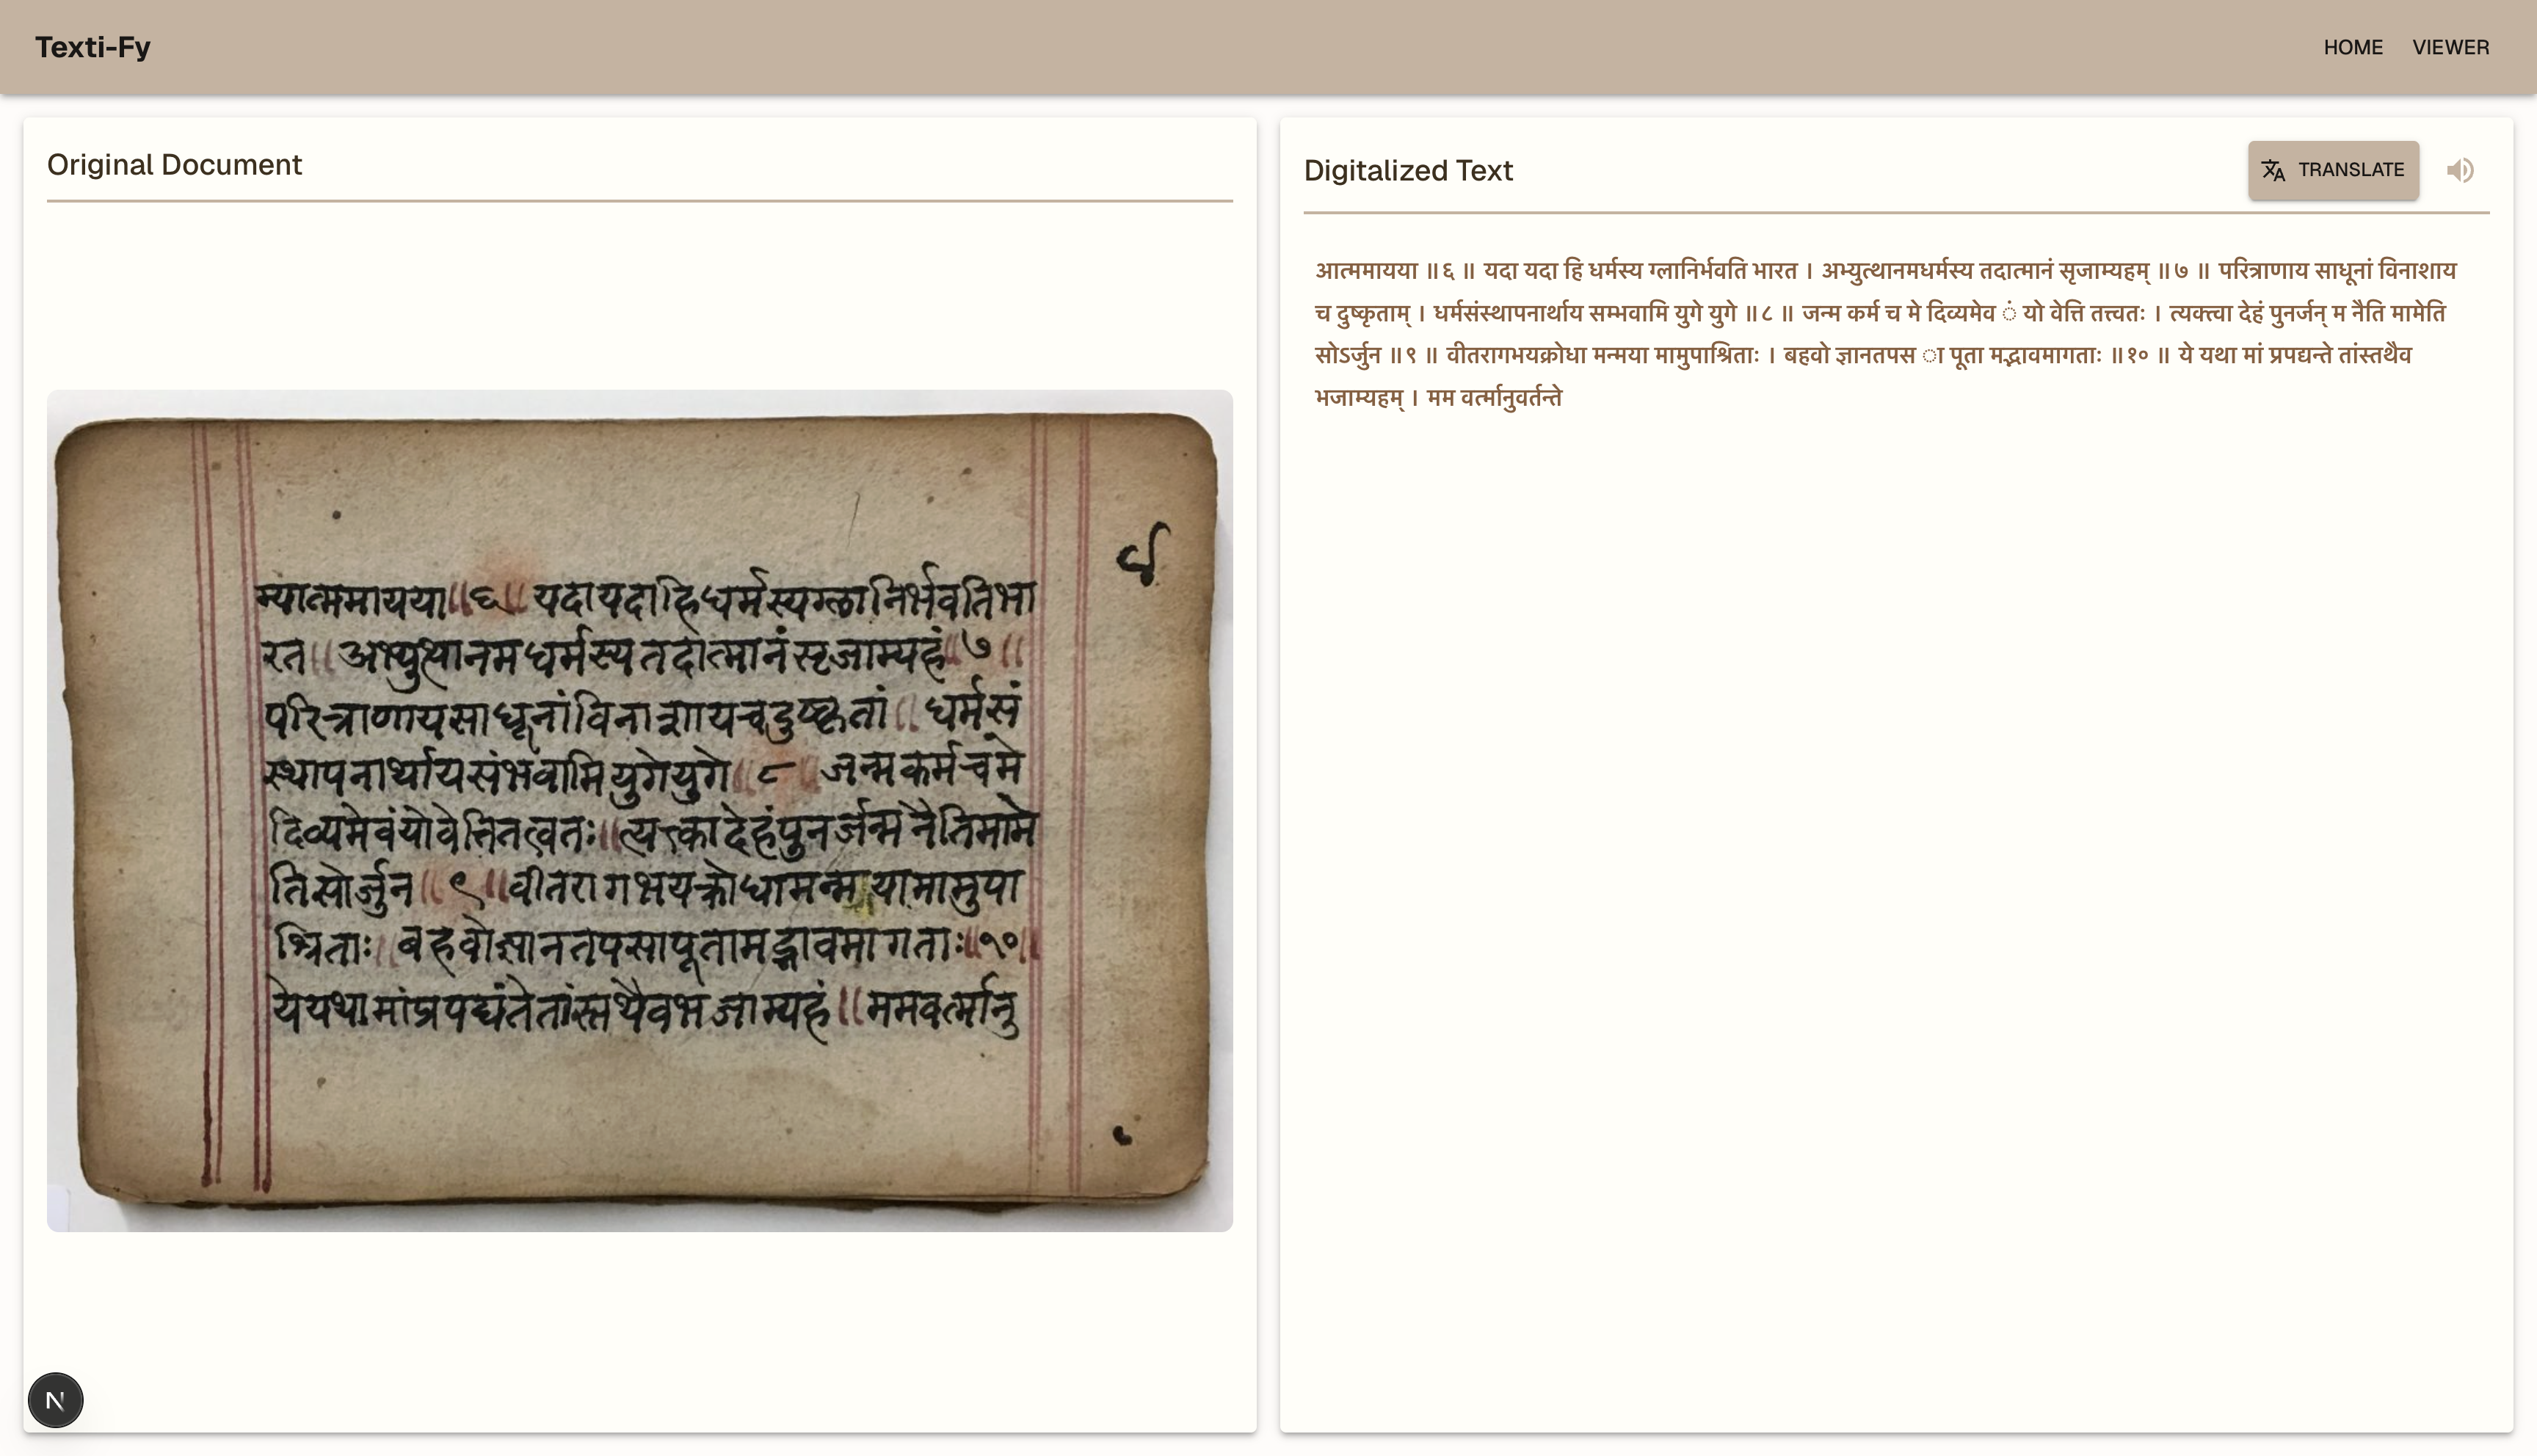 Texti-Fy
HOME
VIEWER
Original Document
म्यात्ममायया॥६॥यदायदाहिधर्मस्यग्लानिर्भवतिभा
रत॥अभ्युत्थानमधर्मस्यतदात्मानंसृजाम्यहं॥७॥
परित्राणायसाधूनांविनाशायचदुष्कृतां॥धर्मसं
स्थापनार्थायसंभवामियुगेयुगे॥८॥जन्मकर्मचमे
दिव्यमेवंयोवेत्तितत्वतः॥त्यक्त्कादेहंपुनर्जन्मनैतिमामे
तिसोर्जुन॥९॥वीतरागभयक्रोधामन्मयामामुपा
श्रिताः॥बहवोज्ञानतपसापूतामद्भावमागताः॥१०॥
येयथामांप्रपद्यंतेतांस्तथैवभजाम्यहं॥ममवर्त्मानु
Digitalized Text
TRANSLATE
आत्ममायया ॥६ ॥ यदा यदा हि धर्मस्य ग्लानिर्भवति भारत । अभ्युत्थानमधर्मस्य तदात्मानं सृजाम्यहम् ॥७ ॥ परित्राणाय साधूनां विनाशाय
च दुष्कृताम् । धर्मसंस्थापनार्थाय सम्भवामि युगे युगे ॥८ ॥ जन्म कर्म च मे दिव्यमेव ं यो वेत्ति तत्त्वतः । त्यक्त्वा देहं पुनर्जन् म नैति मामेति
सोऽर्जुन ॥९ ॥ वीतरागभयक्रोधा मन्मया मामुपाश्रिताः । बहवो ज्ञानतपस ा पूता मद्भावमागताः ॥१० ॥ ये यथा मां प्रपद्यन्ते तांस्तथैव
भजाम्यहम् । मम वर्त्मानुवर्तन्ते
N